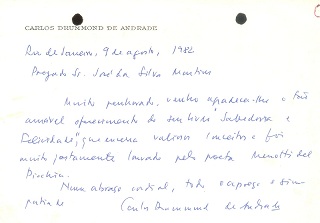 CARLOS DRUMMOND DE ANDRADE
Rio de Janeiro, 9 de agosto, 1982.
Prezado Sr. José da Silva Martins
Muito penhorado, venho agradecer-lhe o tão
amável oferecimento de seu livro "Sabedoria e
Felicidade", que encerra valiosos conceitos e foi
muito justamente louvado pelo poeta Menotti del
Picchia.
Num abraço cordial, todo o apreço e sim-
patia de
Carlos Drummond de Andrade